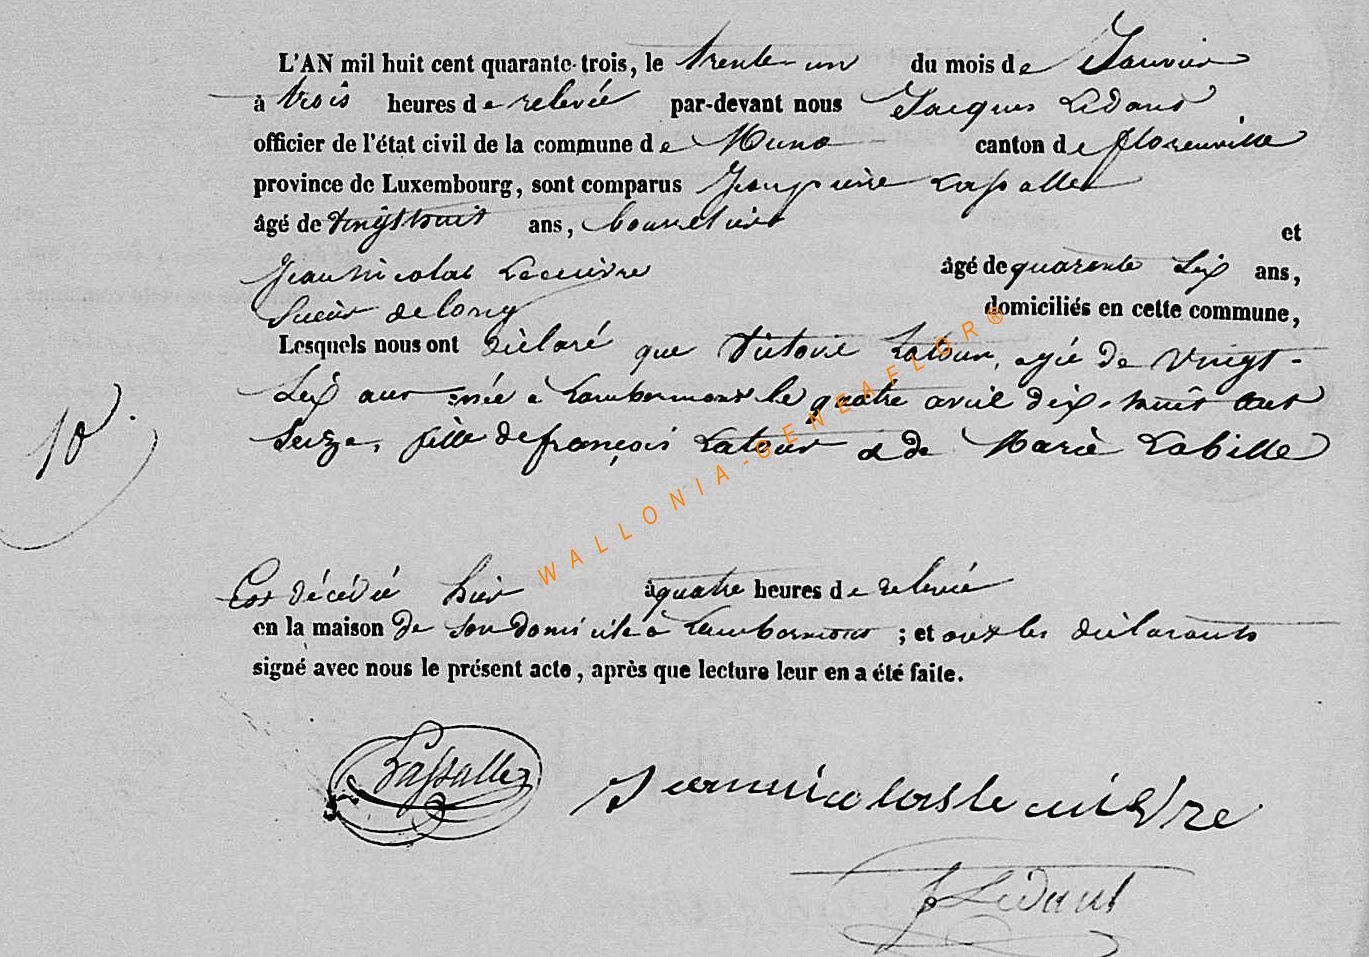 L'AN mil huit cent quarante-trois, le trente-un du mois de Janvier
à trois heures de relevée par-devant nous Jacques Ledant
officier de l'état civil de la commune de Muno canton de florenville
province de Luxembourg, sont comparus Jeanpierre Lassalle
âgé de vingthuit ans, bourrelier et
Jeannicolas Lecuivre âgé de quarante six ans,
Scieur de long domiciliés en cette commune,
Lesquels nous ont déclaré que Victoire Latour, agée de vingt-
Six ans née à Lambermont le quatre avril dix-huit cent
Seize, fille de françois Latour & de Marie Labille
10
Est décédée hier à quatre heures de relevée
en la maison de son domicile à Lambermont ; et ont les déclarants
signé avec nous le présent acte, après que lecture leur en a été faite.
Lassalle Jeannicolaslecuivre
J Ledant
WALLONIA-GENEAFLOR®